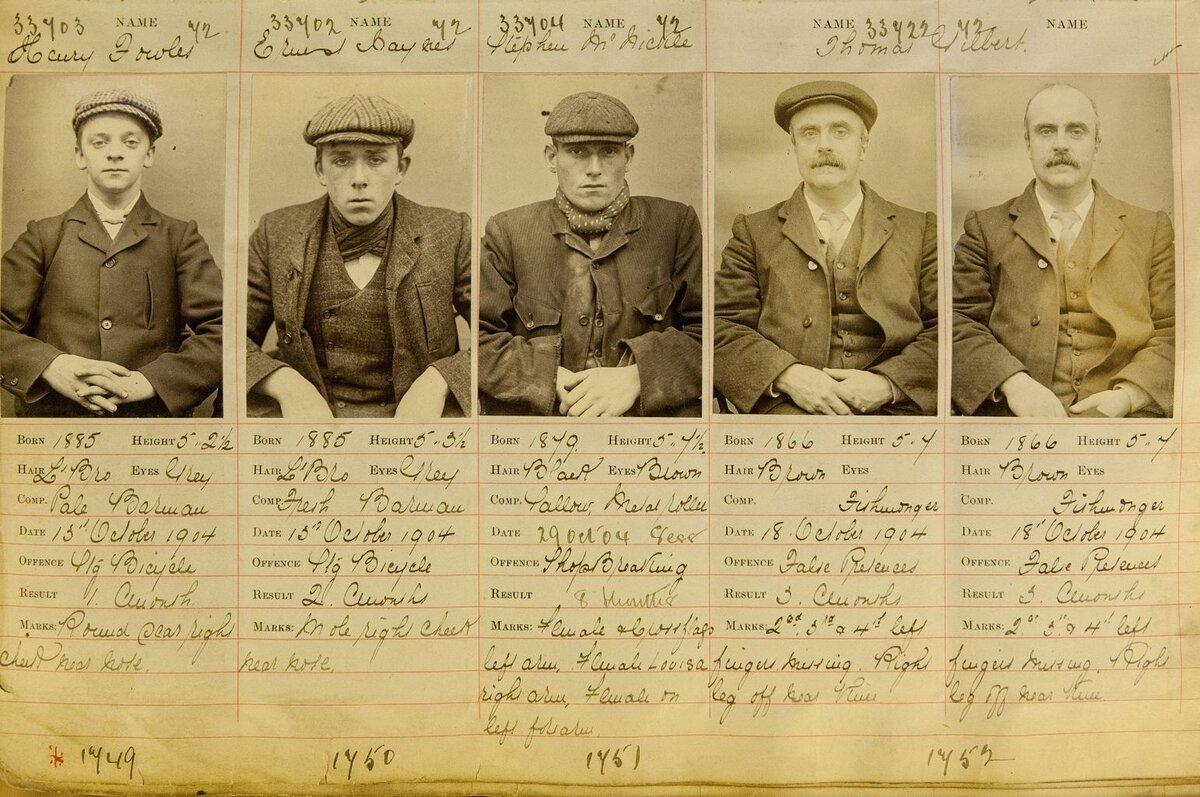 33703 NAME 72
Henry Fowles
33702 NAME 72
Ernest Haynes
33704 NAME 72
Stephen McNickle
NAME 33722 72 NAME
Thomas Gilbert.
BORN 1885 HEIGHT 5-2½
HAIR Lt Bro EYES Grey
COMP. Pale Barman
DATE 13th October 1904
OFFENCE Stg Bicycle
RESULT 1. Month
MARKS: Round scar right
cheek near nose.
* 1749
BORN 1885 HEIGHT 5-3½
HAIR Lt Bro EYES Grey
COMP. Fresh Barman
DATE 13th October 1904
OFFENCE Stg Bicycle
RESULT 2. Months
MARKS: Mole right cheek
near nose,
1750
BORN 1879. HEIGHT 5-7½
HAIR Black EYES Brown
COMP. Sallow, Metal roller
DATE 29 Oct 04 Sess
OFFENCE Shop Breaking
RESULT 8 Months
MARKS: Female & Crossflags
left arm, Female Louisa
right arm, Female on
left forearm.
1751
BORN 1866 HEIGHT 5-7
HAIR Brown EYES
COMP. Fishmonger
DATE 18 October 1904
OFFENCE False Pretences
RESULT 3. Months
MARKS: 2nd, 3rd & 4th left
fingers missing. Right
leg off near knee
BORN 1866 HEIGHT 5-7
HAIR Brown EYES
COMP. Fishmonger
DATE 18th October 1904
OFFENCE False Pretences
RESULT 3. Months
MARKS: 2nd 3rd & 4th left
fingers missing, Right
leg off near knee.
1752